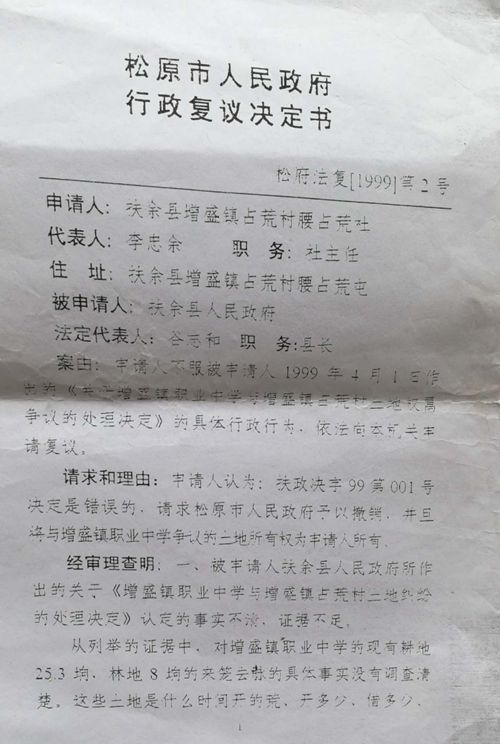 松原市人民政府
行政复议决定书
松府法复[1999]第2号
申请人：扶余县增盛镇占荒村腰占荒社
代表人：李忠余 职务：社主任
住址：扶余县增盛镇占荒村腰占荒屯
被申请人：扶余县人民政府
法定代表人：谷志和 职务:县长
案由：申请人不服被申请人1999年4月1日作
出的《关于增盛镇职业中学与增盛镇占荒村土地权属
争议的处理决定》的具体行政行为，依法向本机关申
请复议。
请求和理由：申请人认为：扶政决字99第001号
决定是错误的，请求松原市人民政府予以撤销，并且
将与增盛镇职业中学争议的土地所有权为申请人所有。
经审理查明：一、被申请人扶余县人民政府所作
出的关于《增盛镇职业中学与增盛镇占荒村土地纠纷
的处理决定》认定的事实不清，证据不足。
从列举的证据中，对增盛镇职业中学的现有耕地
25.3垧，林地8垧的来笼去脉的具体事实没有调查清
楚。这些土地是什么时间开的荒、开多少、借多少、
1